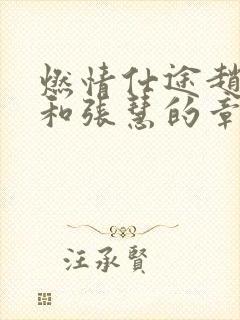 燃情仕途趙
和張慧的章
汪承賢